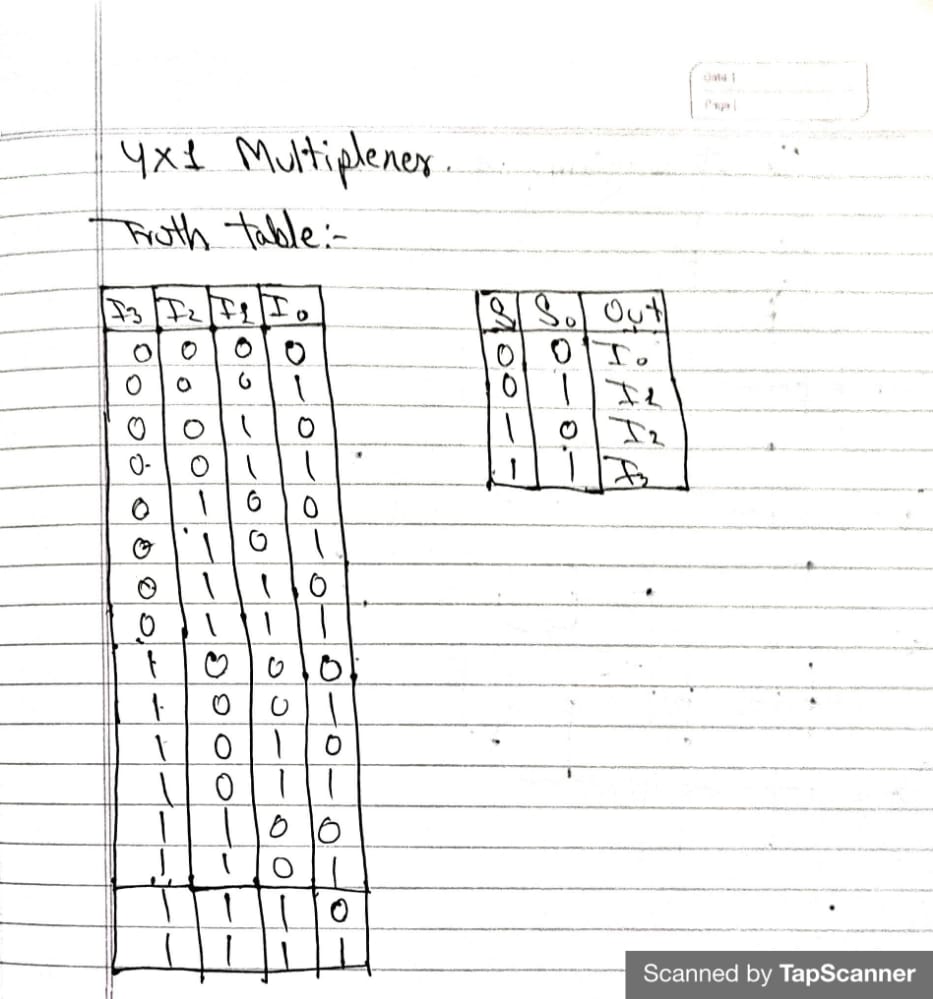 Date :
Page :
4x1 Multiplener.
Truth table:-
I3 I2 I1 I0
0 0 0 0
0 0 0 1
0 0 1 0
0 0 1 1
0 1 0 0
0 1 0 1
0 1 1 0
0 1 1 1
1 0 0 0
1 0 0 1
1 0 1 0
1 0 1 1
1 1 0 0
1 1 0 1
1 1 1 0
1 1 1 1
S1 S0 Out
0 0 I0
0 1 I1
1 0 I2
1 1 I3
Scanned by TapScanner